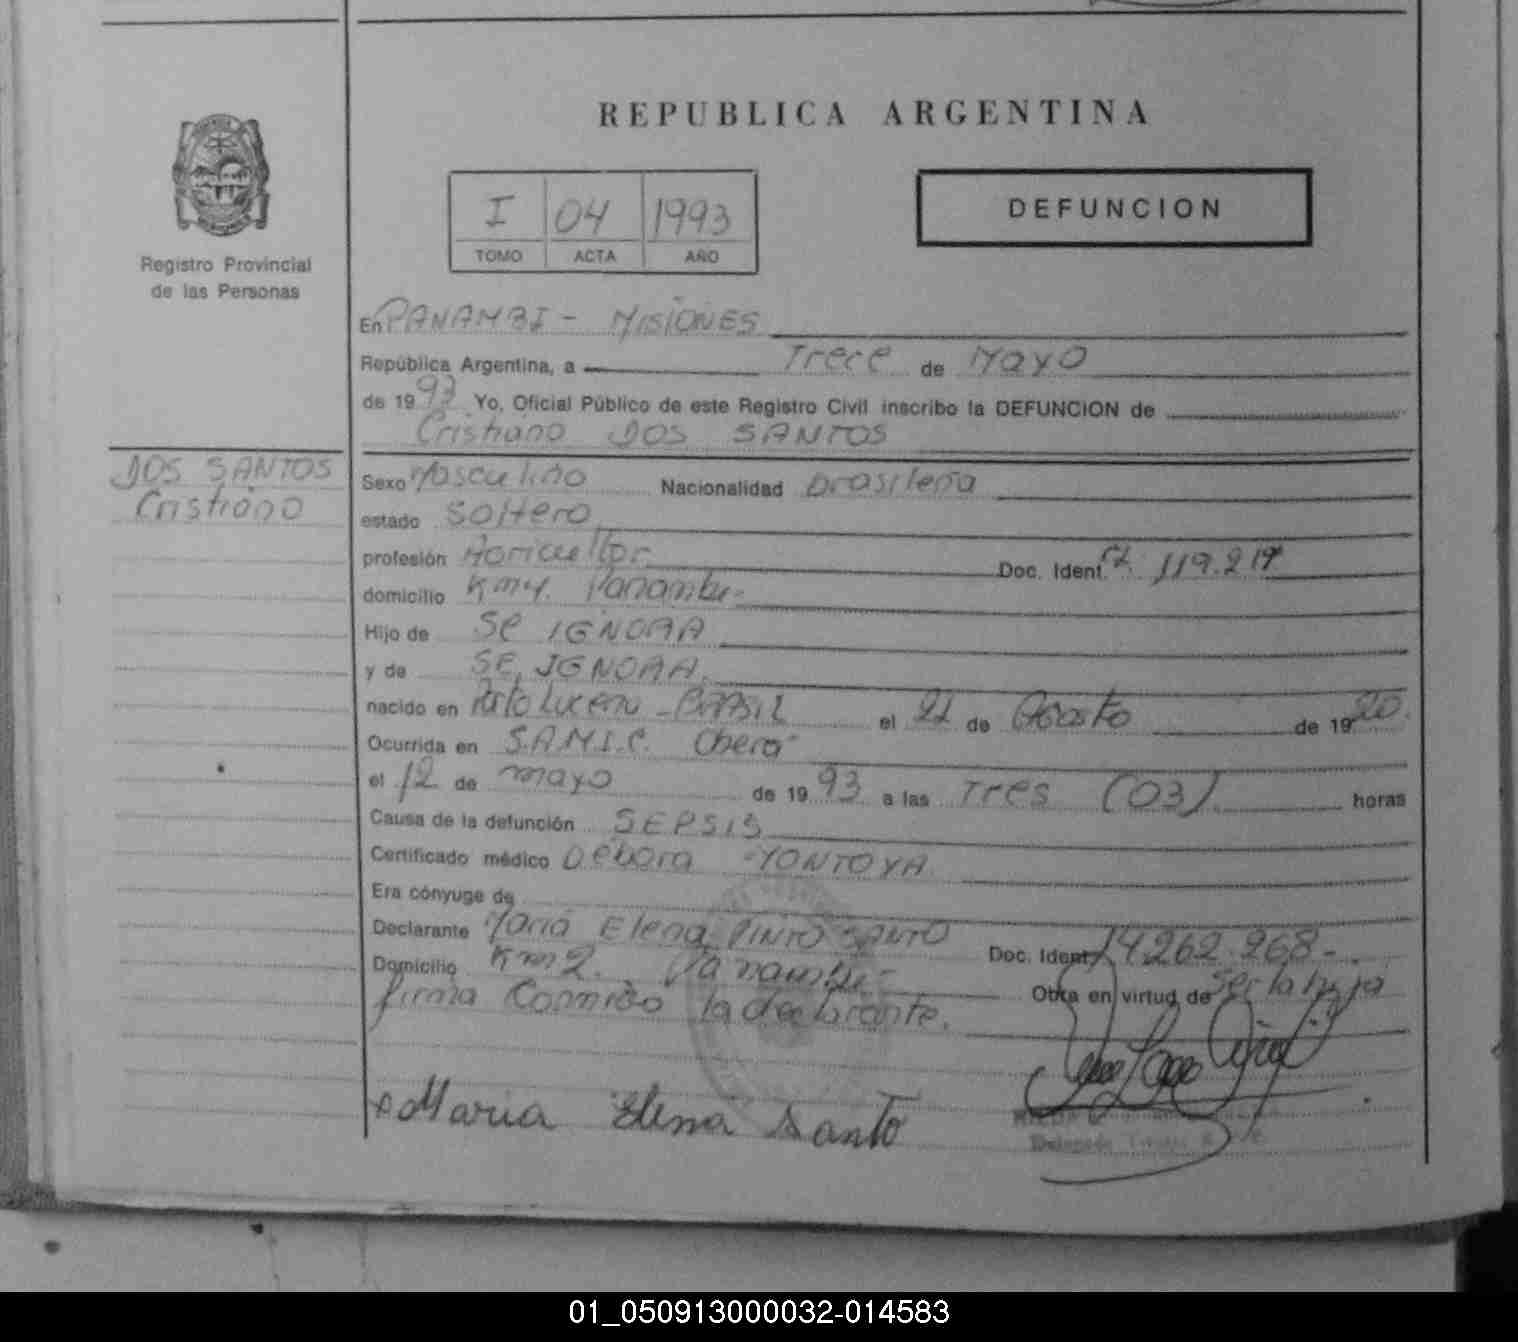 REPUBLICA ARGENTINA
I 04 1993
TOMO ACTA AÑO
DEFUNCION
Registro Provincial
de las Personas
En PANAMBI - MISIONES
República Argentina, a Trece de Mayo
de 1993 Yo, Oficial Público de este Registro Civil inscribo la DEFUNCION de
Cristiano DOS SANTOS
DOS SANTOS
Cristiano
Sexo Masculino Nacionalidad brasileña
estado soltero
profesión Agricultor Doc. Ident. 119.219
domicilio Km 4. Panambi-
Hijo de Se IGNORA
y de SE IGNORA.
nacido en Porto Lucena - BRASIL el 21 de Agosto de 1920.
Ocurrida en S.A.M.I.C. Obera-
el 12 de mayo de 1993 a las Tres (03) horas
Causa de la defunción SEPSIS
Certificado médico Débora MONTOYA
Era cónyuge de
Declarante Maria Elena PINTO SANTO Doc. Ident. 14.262.268-.
Domicilio Km 2. Panambi- Obra en virtud de Ser la hija
firma Conmigo la declarante.
Maria Elena Santo
01_050913000032-014583